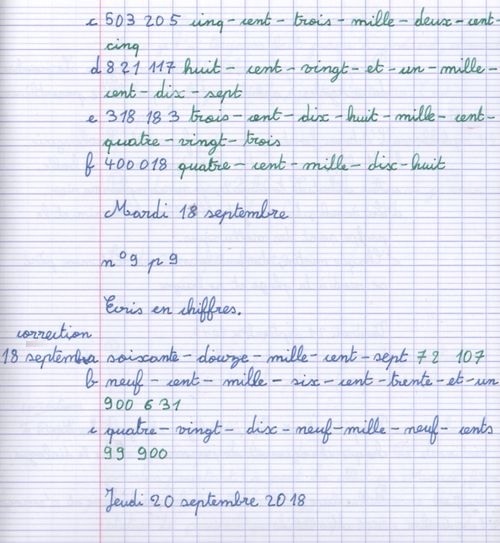 c 503 205 cinq-cent-trois-mille-deux-cent-
cinq
d 821 117 huit-cent-vingt-et-un-mille-
cent-dix-sept
e 318 183 trois-cent-dix-huit-mille-cent-
quatre-vingt-trois
f 400 018 quatre-cent-mille-dix-huit
Mardi 18 septembre
n°9 p 9
Écris en chiffres.
correction
18 septembre a soixante-douze-mille-cent-sept 72 107
b neuf-cent-mille-six-cent-trente-et-un
900 631
c quatre-vingt-dix-neuf-mille-neuf-cents
99 900
Jeudi 20 septembre 2018